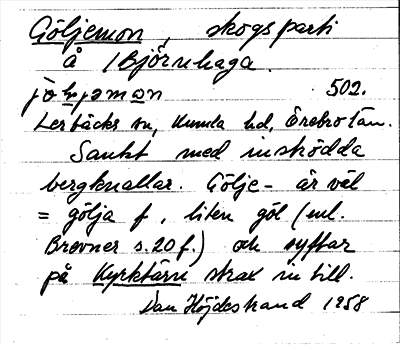 Göljemon, skogsparti
å 1 Björnhaga.
502.
Lerbäcks sn, Kumla hd, Örebro län.
Sankt med inströdda
bergknallar. Gölje- är väl
= gölja f., liten göl (enl.
Brevner s. 20 f.) och syftar
på Kyrktärn strax intill.
Dan Höjdestrand 1958